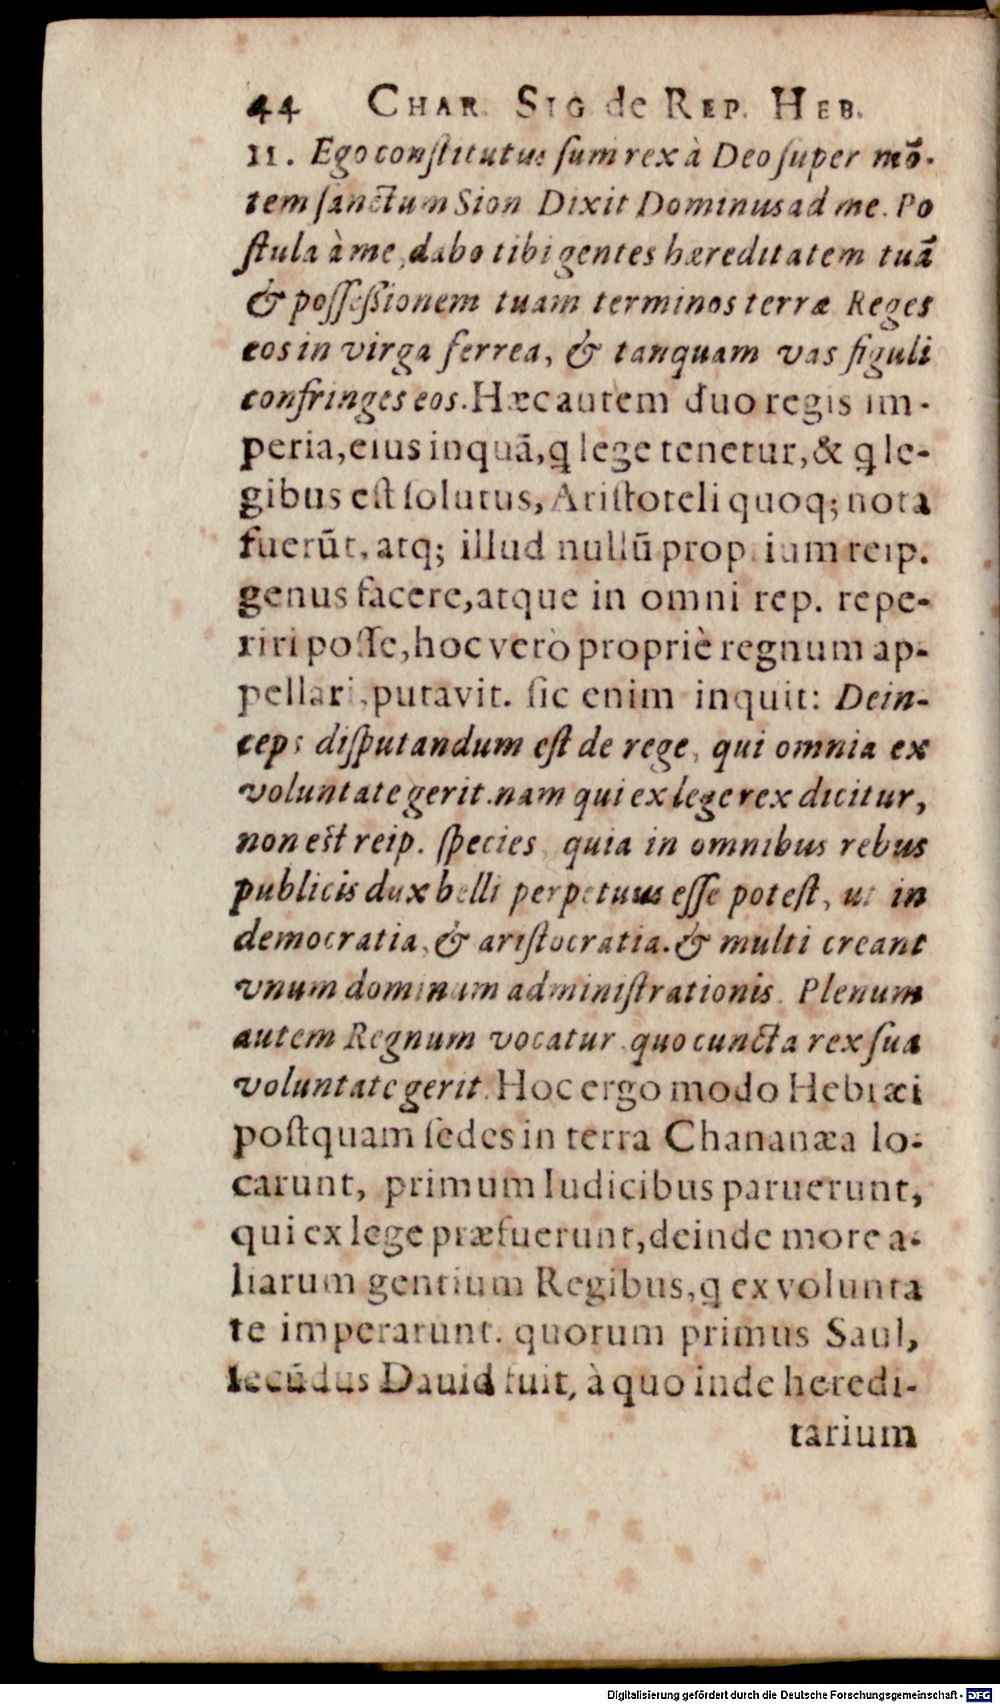 44 CHAR. SIG de REP. HEB.
11. Ego constitutus sum rex à Deo super mō-
tem sanctum Sion Dixit Dominus ad me. Po
stula à me, dabo tibi gentes hæreditatem tuā
& possessionem tuam terminos terræ Reges
eos in virga ferrea, & tanquam vas figuli
confringes eos. Hæc autem duo regis im-
peria, eius inquā, ꝗ lege tenetur, & ꝗ le-
gibus est solutus, Aristoteli quoq; nota
fuerūt, atq; illud nullū proprium reip.
genus facere, atque in omni rep. repe-
riri posse, hoc verò propriè regnum ap-
pellari, putavit. sic enim inquit: Dein-
ceps disputandum est de rege, qui omnia ex
voluntate gerit. nam qui ex lege rex dicitur,
non est reip. species, quia in omnibus rebus
publicis dux belli perpetuus esse potest, ut in
democratia, & aristocratia. & multi creant
vnum dominum administrationis. Plenum
autem Regnum vocatur, quo cuncta rex sua
voluntate gerit. Hoc ergo modo Hebræi
postquam sedes in terra Chananæa lo-
carunt, primum Iudicibus paruerunt,
qui ex lege præfuerunt, deinde more a-
liarum gentium Regibus, ꝗ ex volunta
te imperarunt. quorum primus Saul,
secūdus Dauid fuit, à quo inde heredi-
tarium
Digitalisierung gefördert durch die Deutsche Forschungsgemeinschaft - DFG